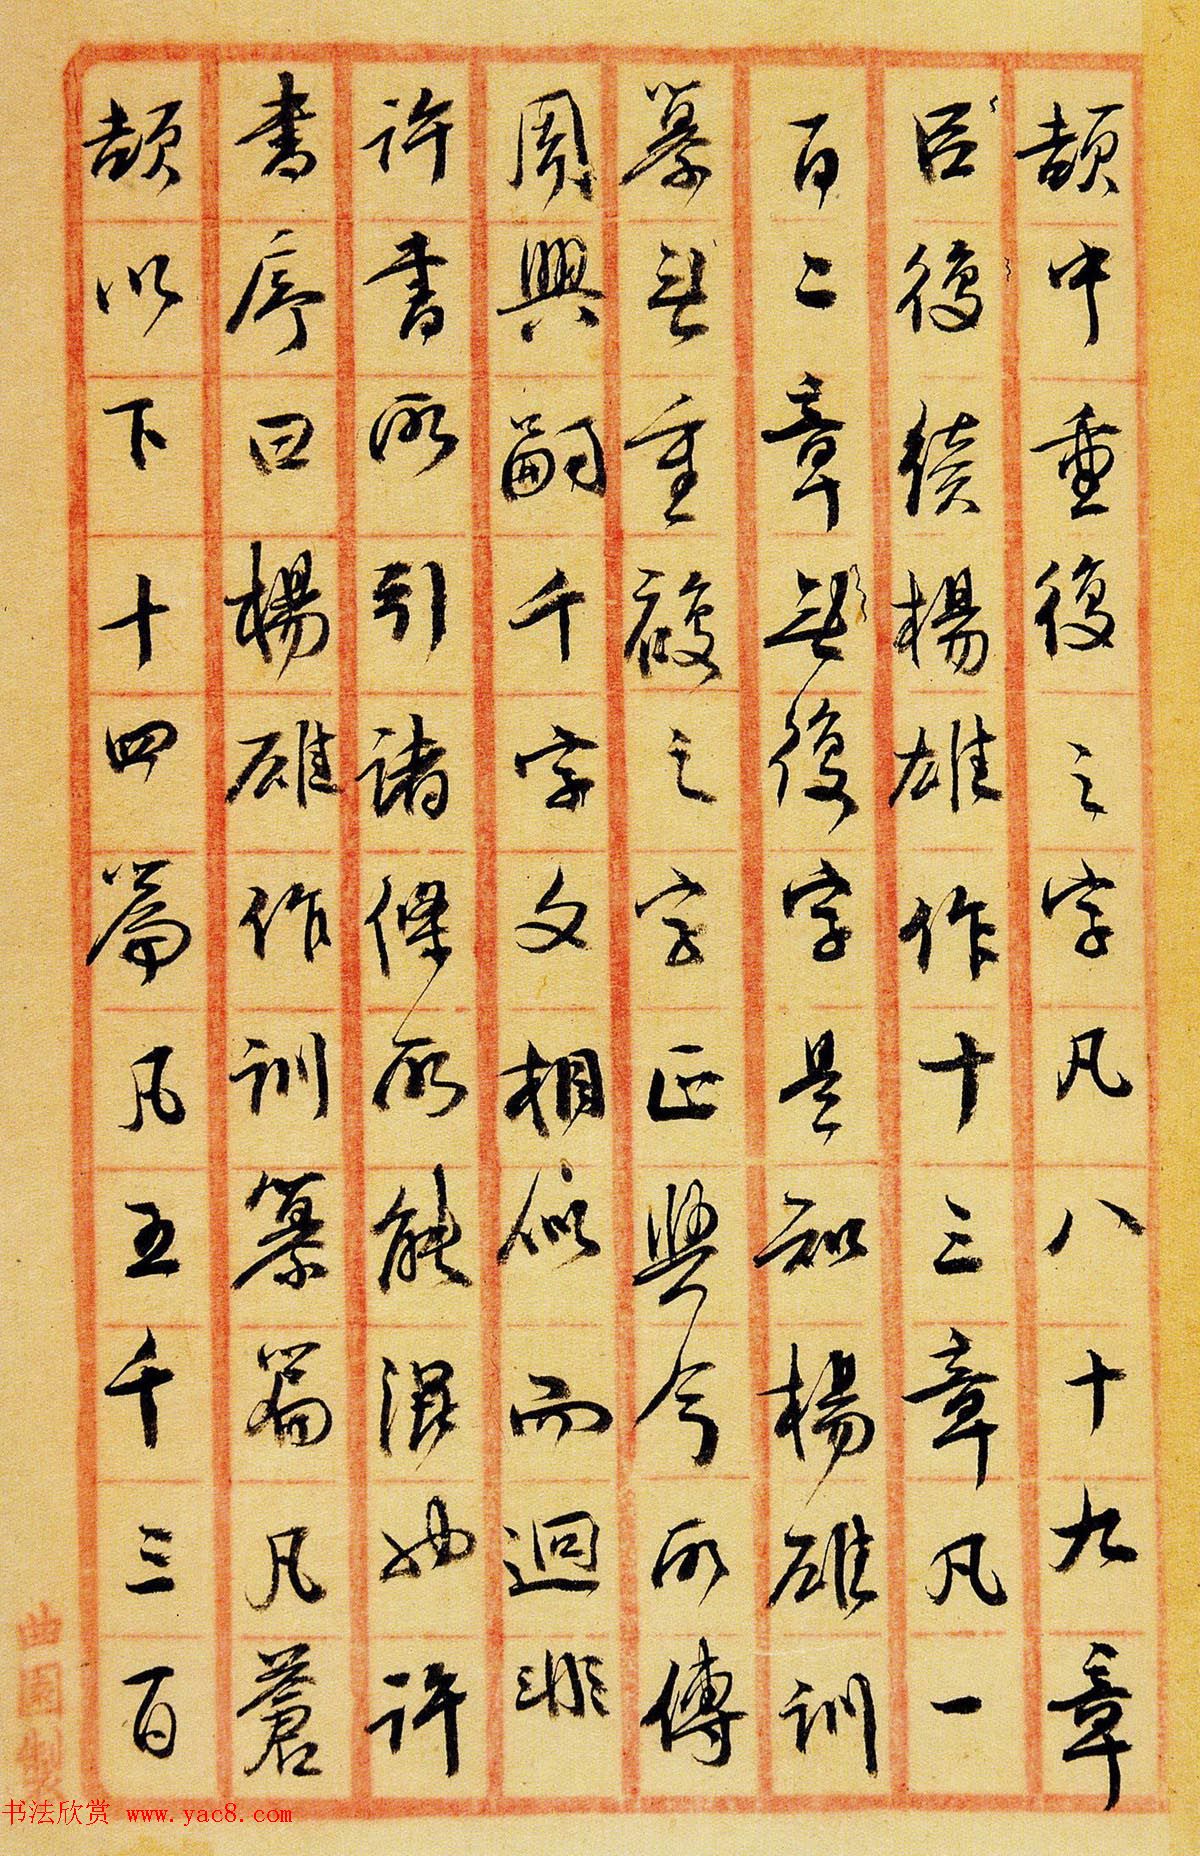 頡中重復之字凡八十九章
臣復續楊雄作十三章凡一
百二章無復字是知楊雄訓
纂無重複之字正與今所傳
周興嗣千字文相似而迥非
許書所引諸條所能混也許
書序曰楊雄作訓纂篇凡蒼
頡以下十四篇凡五千三百
曲園製
书法欣赏 www.yac8.com